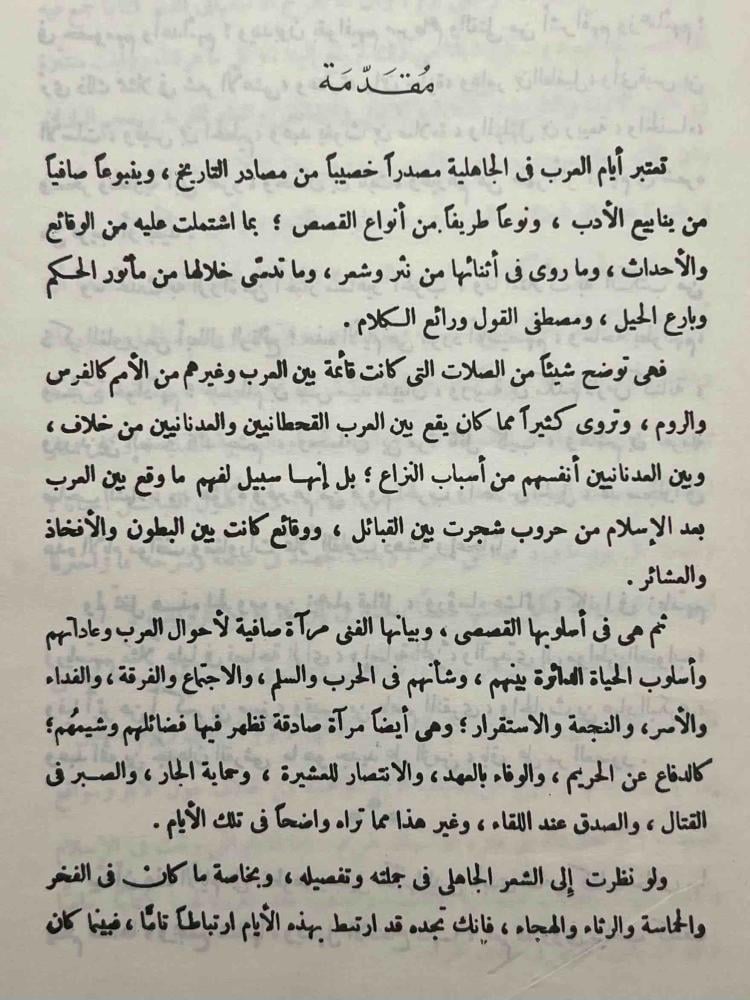 مُقَدّمَة
تعتبر أيام العرب فى الجاهلية مصدراً خصيباً من مصادر التاريخ ، وينبوعاً صافياً
من ينابيع الأدب ، ونوعاً طريفاً من أنواع القصص ؛ بما اشتملت عليه من الوقائع
والأحداث ، وما روى فى أثنائها من نثر وشعر ، وما تدسّى خلالها من مأثور الحكم
وبارع الحيل ، ومصطفى القول ورائع الكلام .
فهى توضح شيئاً من الصلات التى كانت قائمة بين العرب وغيرهم من الأمم كالفرس
والروم ، وتروى كثيراً مما كان يقع بين العرب القحطانيين والعدنانيين من خلاف ،
وبين العدنانيين أنفسهم من أسباب النزاع ؛ بل إنها سبيل لفهم ما وقع بين العرب
بعد الإسلام من حروب شجرت بين القبائل ، ووقائع كانت بين البطون والأفخاذ
والعشائر .
ثم هى فى أسلوبها القصصى ، وبيانها الفنى مرآة صافية لأحوال العرب وعاداتهم
وأسلوب الحياة الدائرة بينهم ، وشأنهم فى الحرب والسلم ، والاجتماع والفرقة ، والفداء
والأسر ، والنجعة والاستقرار ؛ وهى أيضاً مرآة صادقة تظهر فيها فضائلهم وشيمُهم ؛
كالدفاع عن الحريم ، والوفاء بالعهد ، والانتصار للعشيرة ، وحماية الجار ، والصبر فى
القتال ، والصدق عند اللقاء ، وغير هذا مما تراه واضحاً فى تلك الأيام .
ولو نظرت إلى الشعر الجاهلى فى جملته وتفصيله ، وبخاصة ما كان فى الفخر
والحماسة والرثاء والهجاء ، فإنك تجده قد ارتبط بهذه الأيام ارتباطاً تامًّا ، فبينما كان